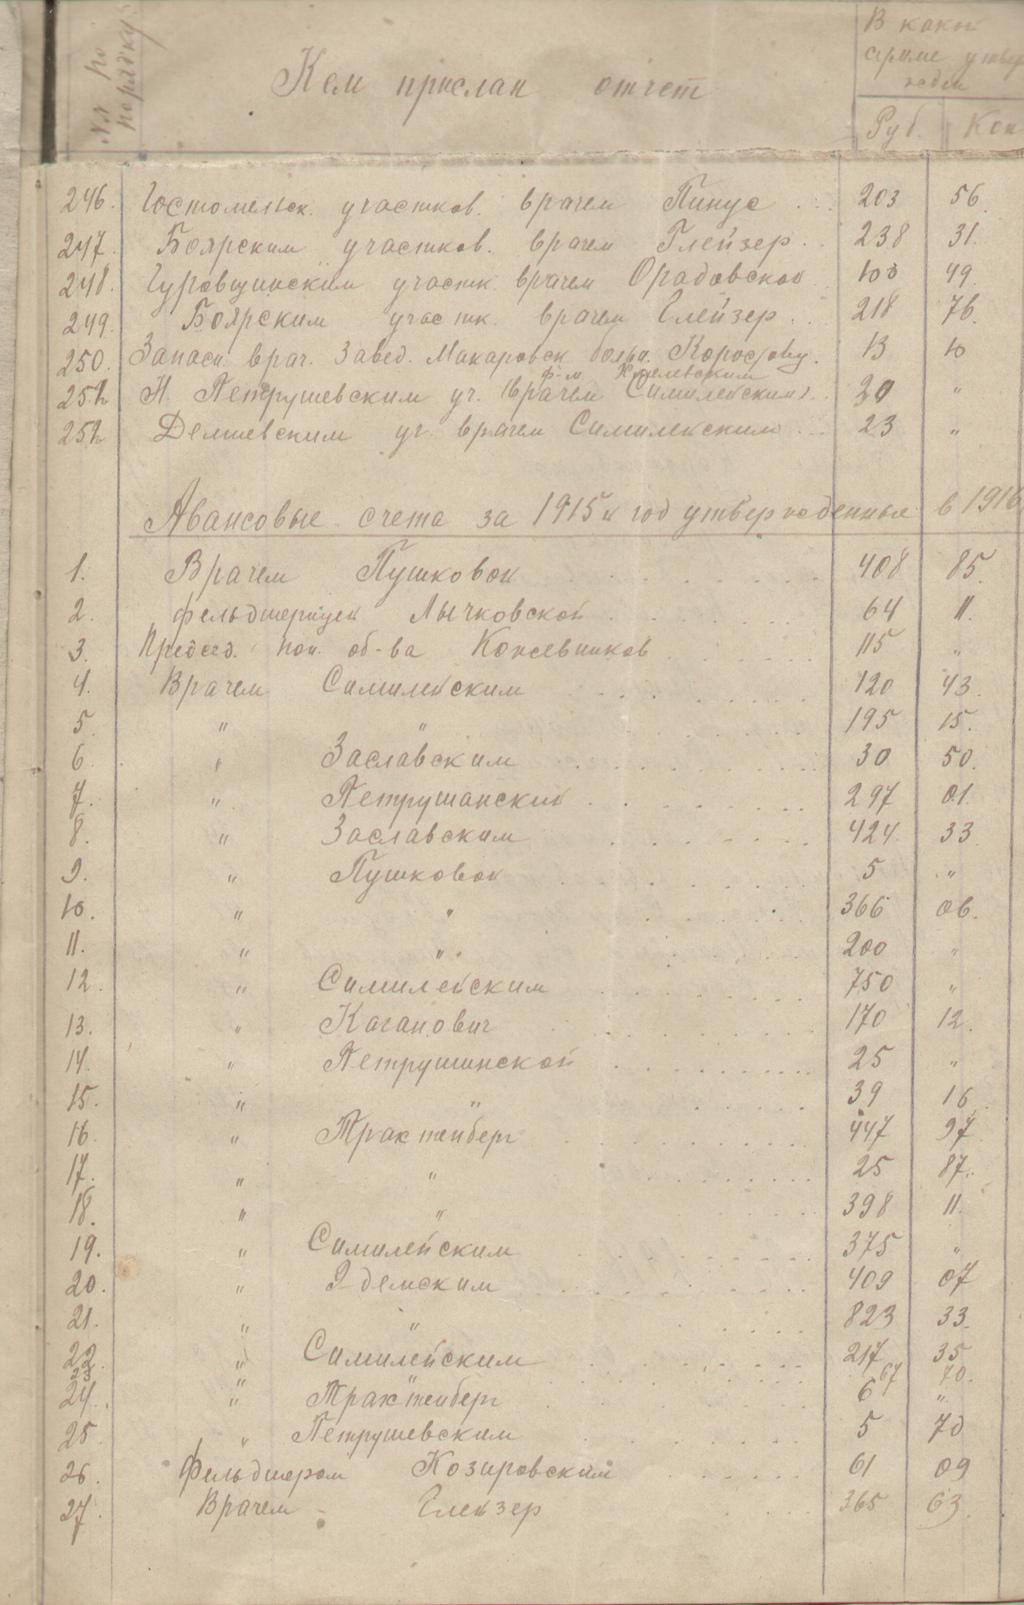 №№ по порядку
Кем прислан отчет
В какой сумме утвержден
Руб. Коп
246. Гостомельск. участков. врачем Пинус 203 56.
247. Боярским участков. врачем Глейзер 238 31.
248. Гуровщинским участк. врачем Орадовской 100 49.
249. Боярским участк. врачем Глейзер 218 76.
250. Запасн. врач. Завед. Макаровск больн. Коростову. 13 10
ф-м
251. Н. Петрушевским уч. врачем Симилейским 30 "
252 уч. врачем Симилейским 23 "
Авансовые счета за 1915й год утвержденные в 1916
1. Врачем Пушковой 408 85.
2. Фельдшерицей Лычковской 64 11.
3. Председ. поп. об-ва Кожевников 115 "
4. Врачем Симилейским 120 43.
5 " " 195 15.
6. " Заславским 30 50.
7. " Петрушанский 297 01.
8. " Заславским 424 33
9. " Пушковой 5 "
10. " " 366 06.
11. " " 200 "
12. " Симилейским 750 "
13. " Каганович 170 12.
14. " Петрушинской 25 "
15. " " 39 16
16. " Трахтенберг 447 97
17. " " 25 87.
18. " " 398 11.
19. " Симилейским 375 "
20. " 409 07
21. " " 823 33.
22 " Симилейским 217 35
23 " " 67 70.
24. " Трахтенберг 6 "
25 " Петрушевским 5 70
26. Фельдшером Козировским 61 09
27. Врачем Глейзер 365 63.